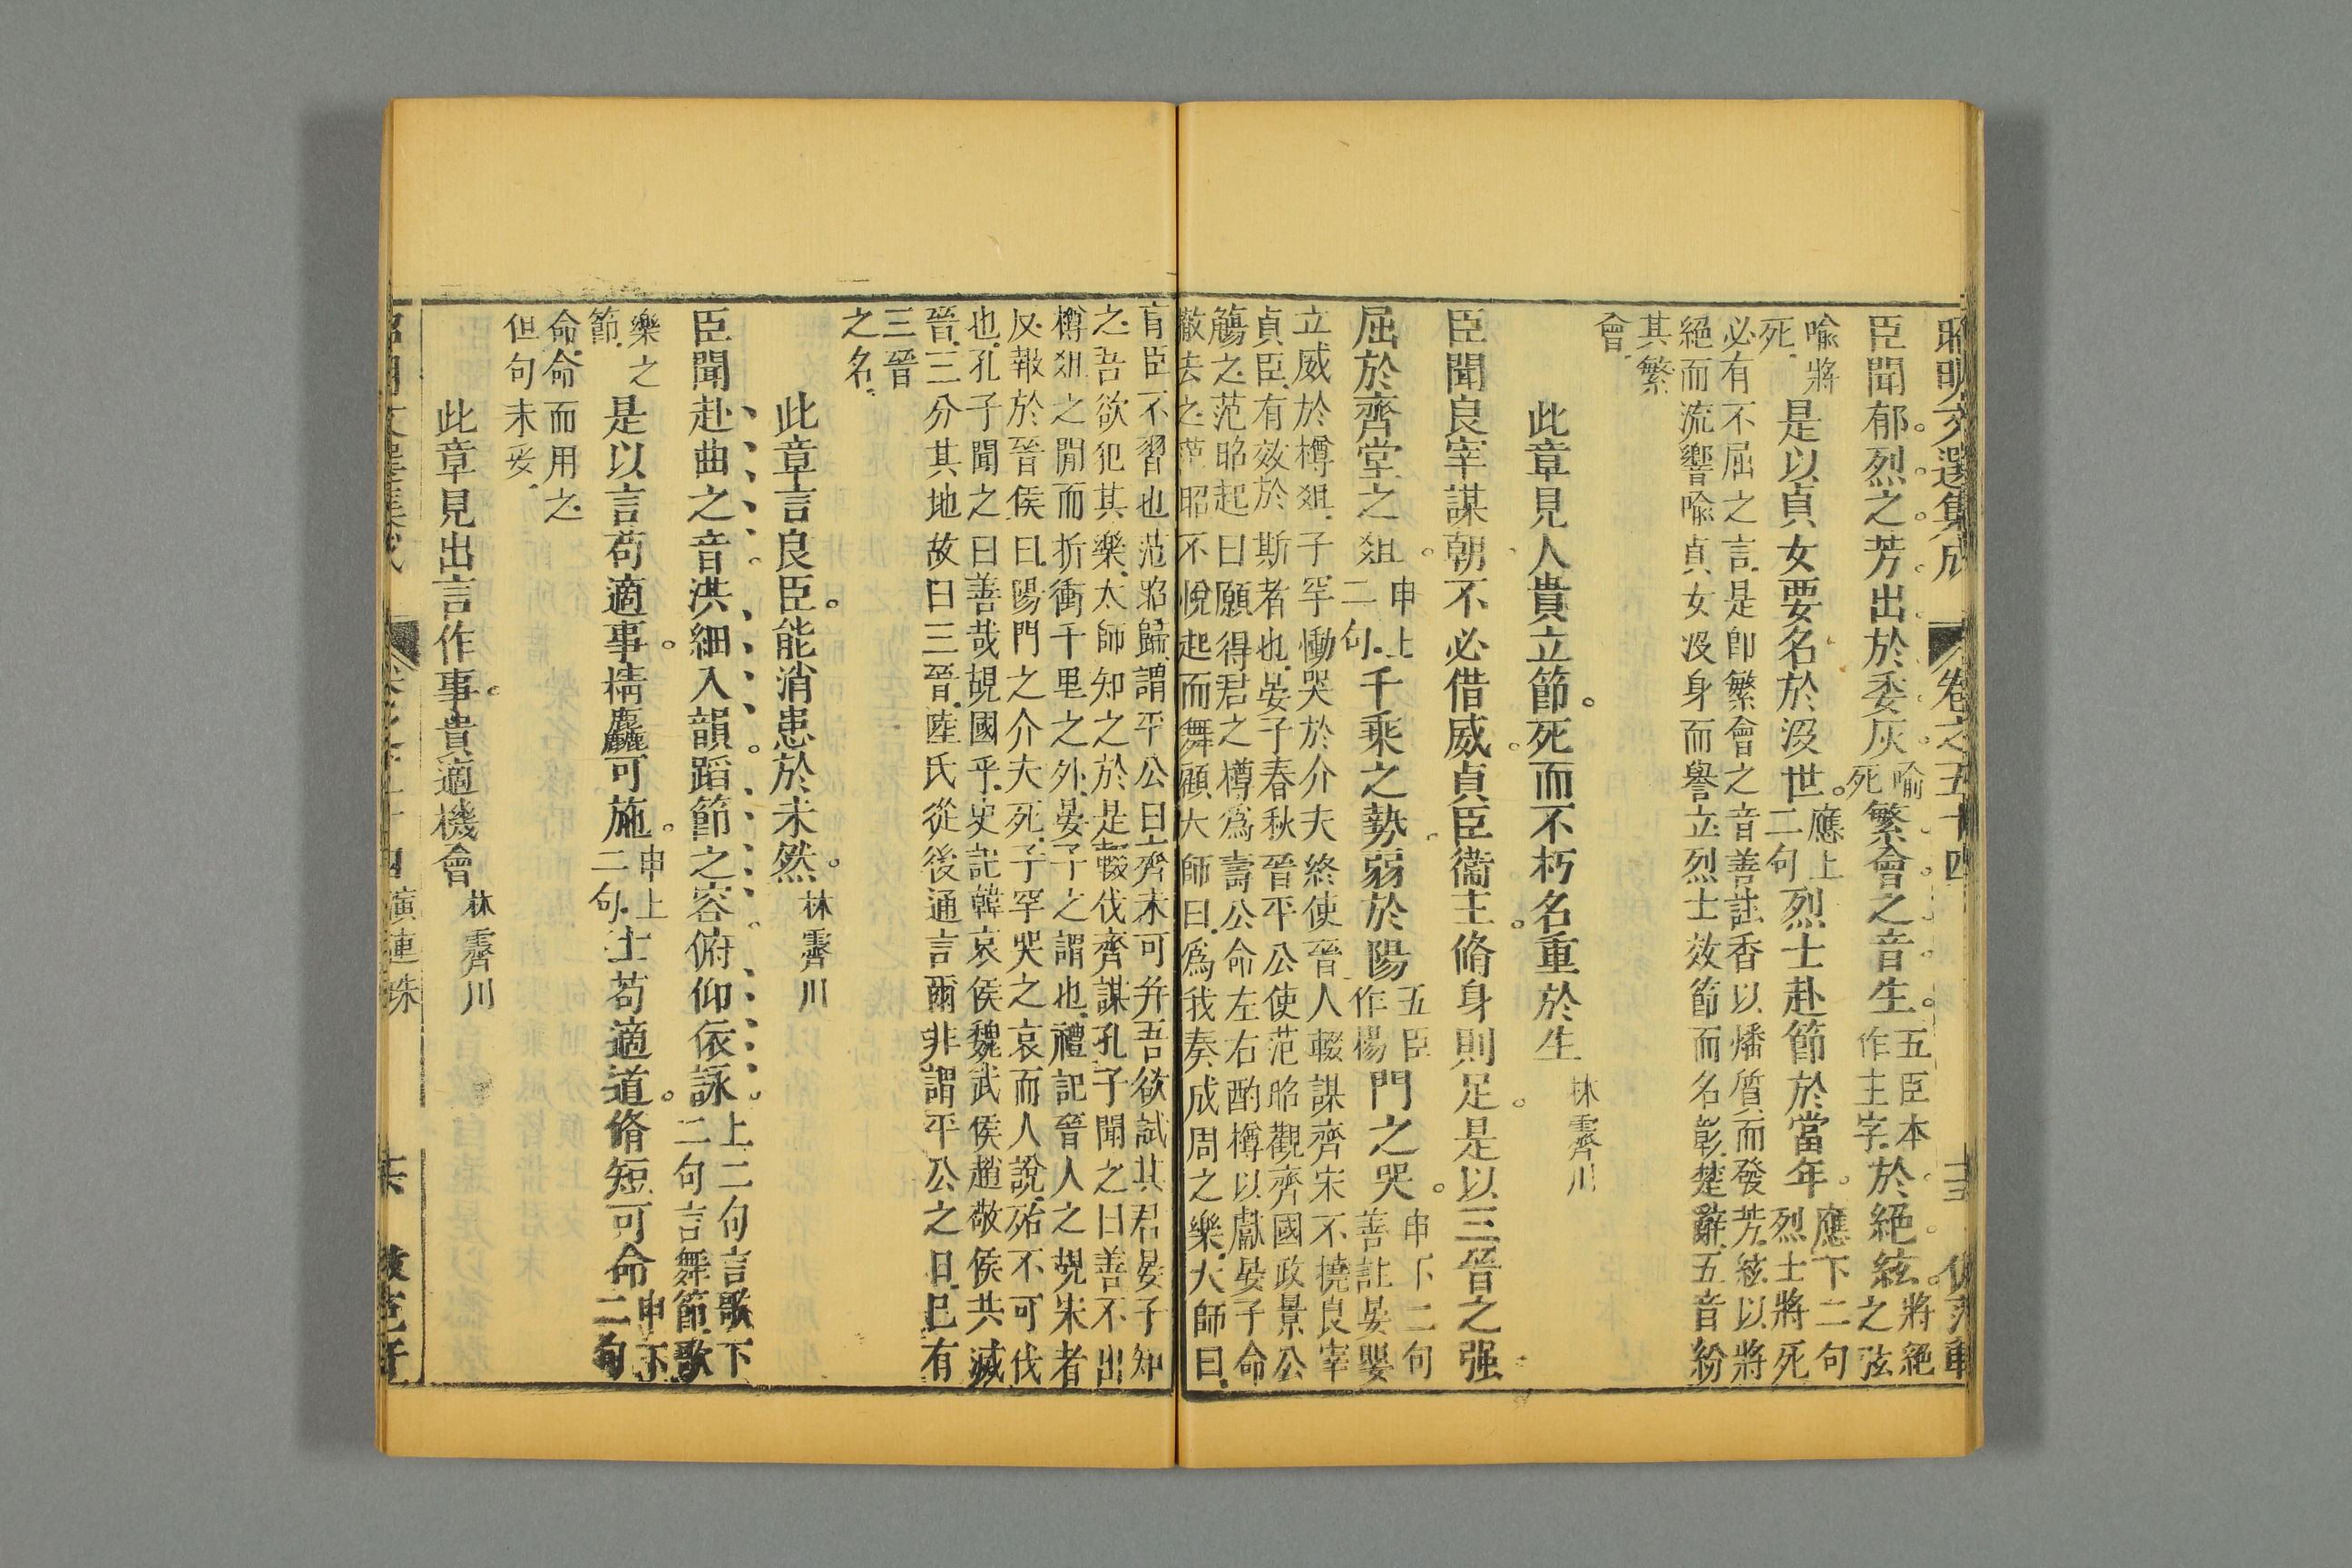 昭明文選集成 卷之五十四 傲范軒
臣聞郁烈之芳出於委灰喻死繁會之音生五臣本作主字於絕絃將絕之弦
喻將死是以貞女要名於沒世應上二句烈士赴節於當年應下二句烈士將死
必有不屈之言是卽繁會之音善註香以燔質而發芳絃以將
絕而流響喻貞女沒身而譽立烈士效節而名彰楚辭五音紛
其繁
會
此章見人貴立節死而不朽名重於生 林霽川
臣聞良宰謀朝不必借威貞臣衞主脩身則足是以三晉之强
屈於齊堂之俎申上二句千乘之勢弱於陽五臣作楊門之哭申下二句善註晏嬰
立威於樽俎子罕慟哭於介夫終使晉人輟謀齊宋不撓良宰
貞臣有效於斯者也晏子春秋晉平公使范昭觀齊國政景公
觴之范昭起曰願得君之樽爲壽公命左右酌樽以獻晏子命
徹去之范昭不悅起而舞顧大師曰爲我奏成周之樂大師曰
盲臣不習也范昭歸謂平公曰齊未可并吾欲試其君晏子知
之吾欲犯其樂太師知之於是輟伐齊謀孔子聞之曰善不出
樽俎之閒而折衝千里之外晏子之謂也禮記晉人之覘宋者
反報於晉侯曰陽門之介夫死子罕哭之哀而人說殆不可伐
也孔子聞之曰善哉覘國乎史記韓哀侯魏武侯趙敬侯共滅
晉三分其地故曰三晉陸氏從後通言爾非謂平公之日已有
三晉
之名
此章言良臣能消患於未然 林霽川
臣聞赴曲之音洪細入韻蹈節之容俯仰依詠上二句言歌下二句言舞節歌
樂之節是以言苟適事精麤可施申上二句士苟適道脩短可命申下二句
命命而用之
但句未妥
此章見出言作事貴適機會 林霽川
昭明文選集成 演連珠